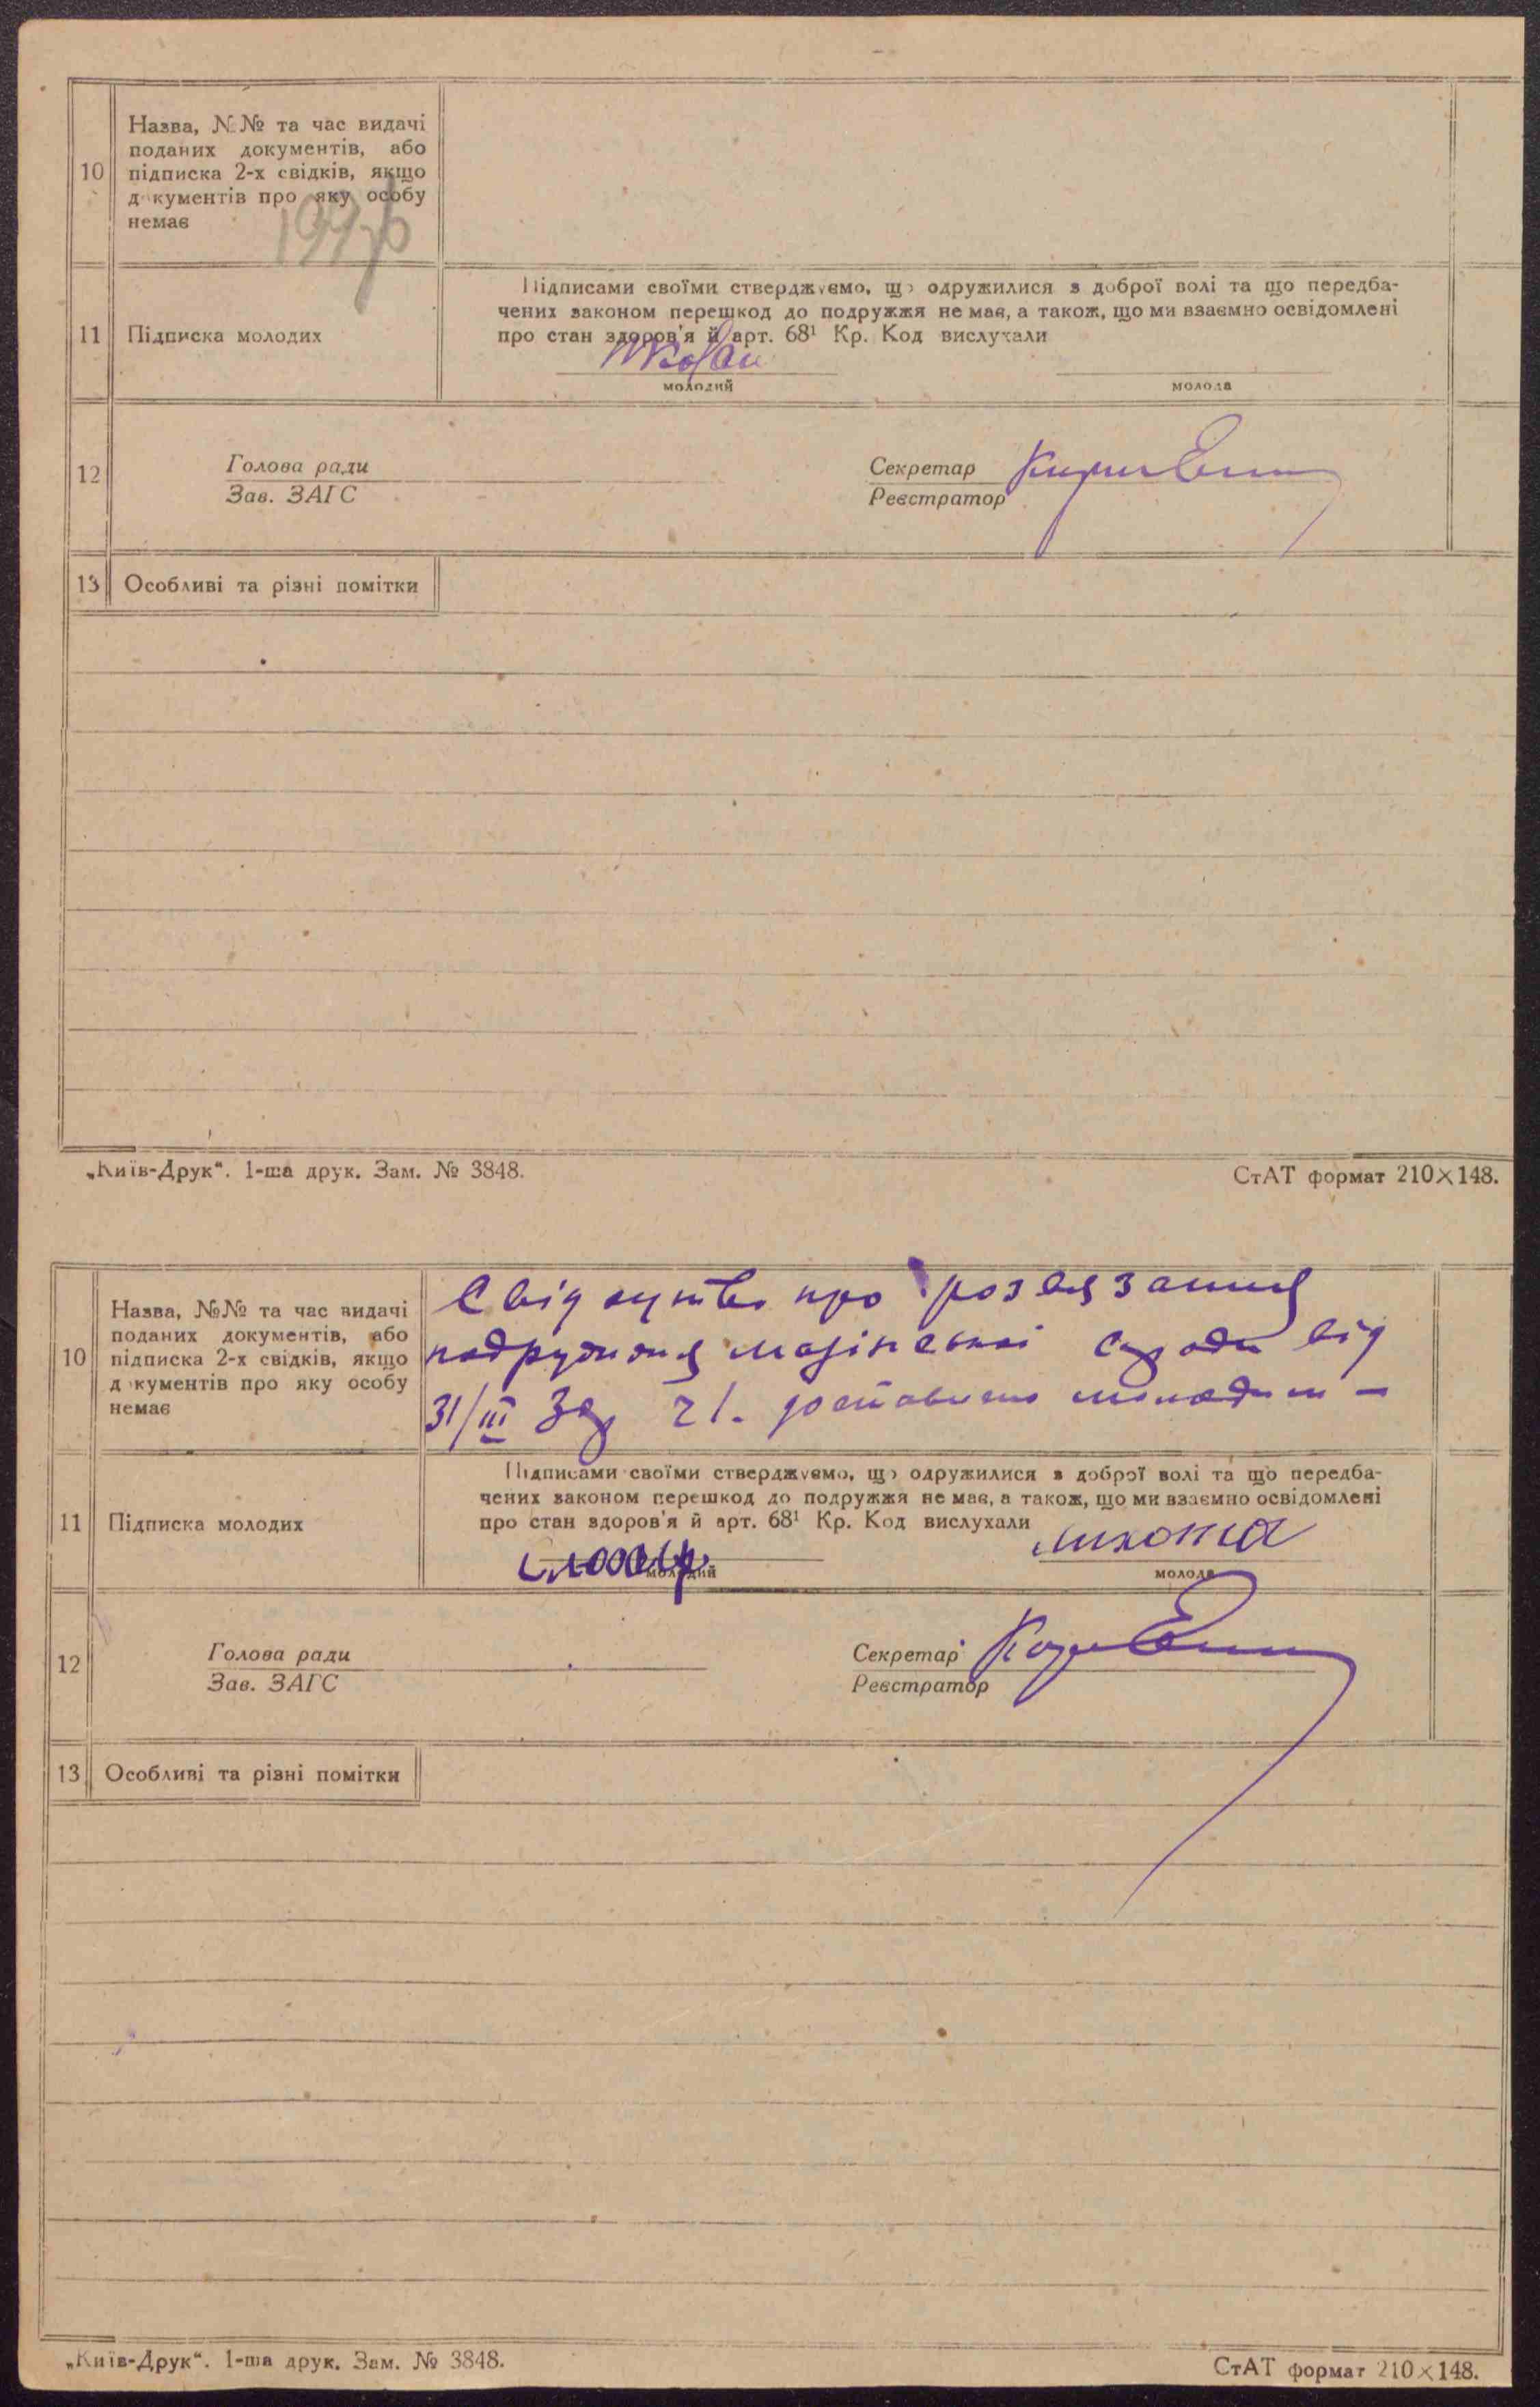 10
Назва, №№ та час видачі
поданих документів, або
підписка 2-х свідків, якщо
документів про яку особу
немає
11
Підписка молодих
Підписами своїми стверджуємо, що одружилися з доброї волі та що передба-
чених законом перешкод до подружжя не має, а також, що ми взаємно освідомлені
про стан здоров'я й арт. 68¹ Кр. Код вислухали
молодий молода
12
Голова ради Секретар
Зав. ЗАГС Реєстратор
13 Особливі та різні помітки
„Київ-Друк“. 1-ша друк. Зам. № 3848. СтАТ формат 210×148.
Свідоцтво про розвязання
10
Назва, №№ та час видачі
поданих документів, або
підписка 2-х свідків, якщо
документів про яку особу
немає
подружжя від
31/III
11
Підписка молодих
Підписами своїми стверджуємо, що одружилися з доброї волі та що передба-
чених законом перешкод до подружжя не має, а також, що ми взаємно освідомлені
про стан здоров'я й арт. 68¹ Кр. Код вислухали
молодий молода
12
Голова ради Секретар
Зав. ЗАГС Реєстратор
13 Особливі та різні помітки
„Київ-Друк“. 1-ша друк. Зам. № 3848. СтАТ формат 210×148.